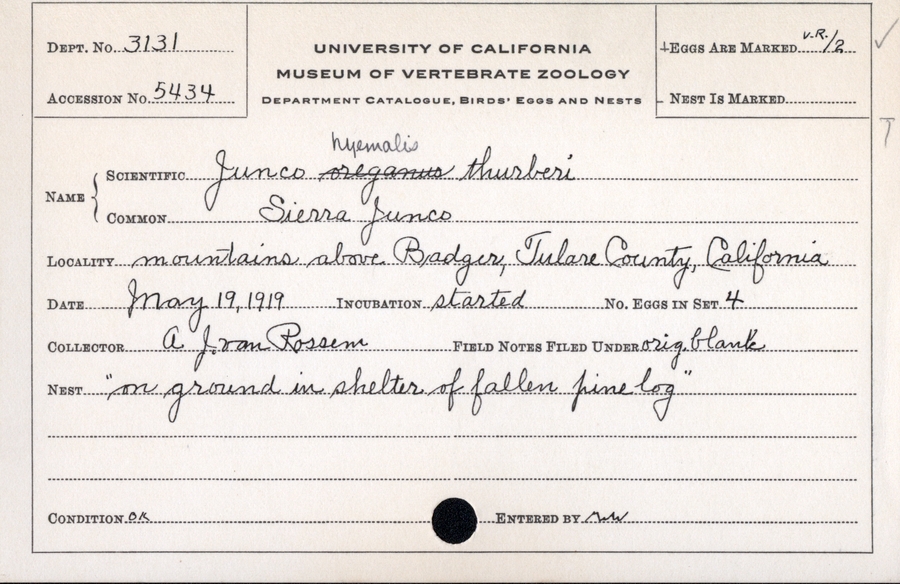 DEPT. No. 3131
ACCESSION No. 5434
UNIVERSITY OF CALIFORNIA
MUSEUM OF VERTEBRATE ZOOLOGY
DEPARTMENT CATALOGUE, BIRDS' EGGS AND NESTS
EGGS ARE MARKED V.R./2
NEST IS MARKED
hyemalis
NAME
SCIENTIFIC Junco oreganus thurberi
COMMON Sierra Junco
LOCALITY mountains above Badger, Tulare County, California
DATE May 19, 1919 INCUBATION started No. EGGS IN SET 4
COLLECTOR A J. van Rossem FIELD NOTES FILED UNDER orig. blank
NEST "on ground in shelter of fallen pine log"
CONDITION OK ENTERED BY